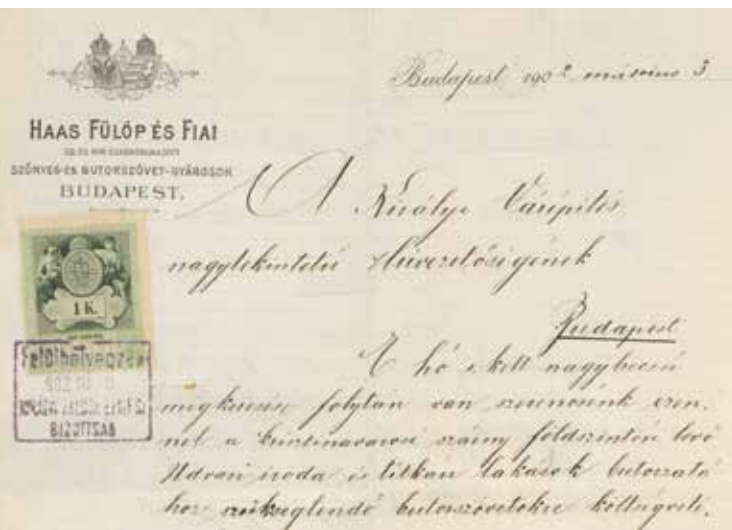 HAAS FÜLÖP ÉS FIAI
CS. ÉS KIR.
SZŐNYEG-ÉS BUTORSZÖVET-GYÁROSOK
BUDAPEST.
Budapest 1902 március 3
A Királyi Várépítés
nagytekintetű Művezetőségének
Budapest
1 K.
BIZOTTSÁG
E hó 1. kelt nagybecsű
megkeresése folytán van szerencsénk ezen-
nel a krisztinavárosi szárny földszintén levő
Udvari iroda és titkári lakások butorzatá
hoz szükséglendő butorszövetekre költségveté,